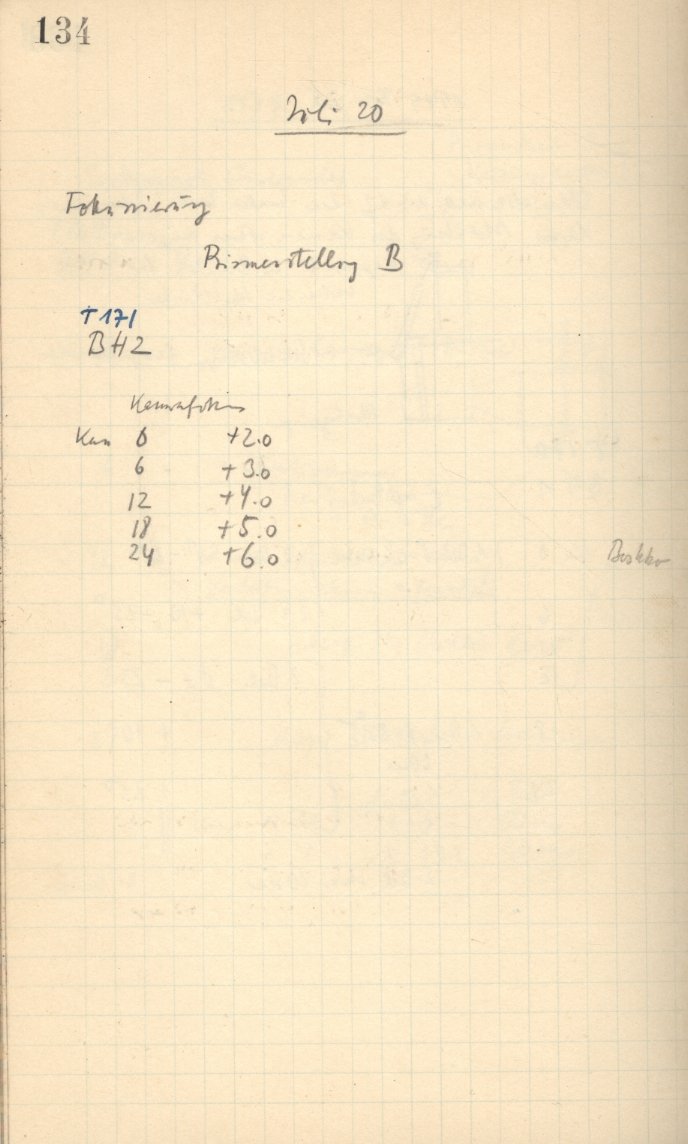 134
Juli 20
Fokussierung
Prismenstellung B
T 171
BH2
Kamerafokus
Kam 0 +2.0
6 +3.0
12 +4.0
18 +5.0
24 +6.0